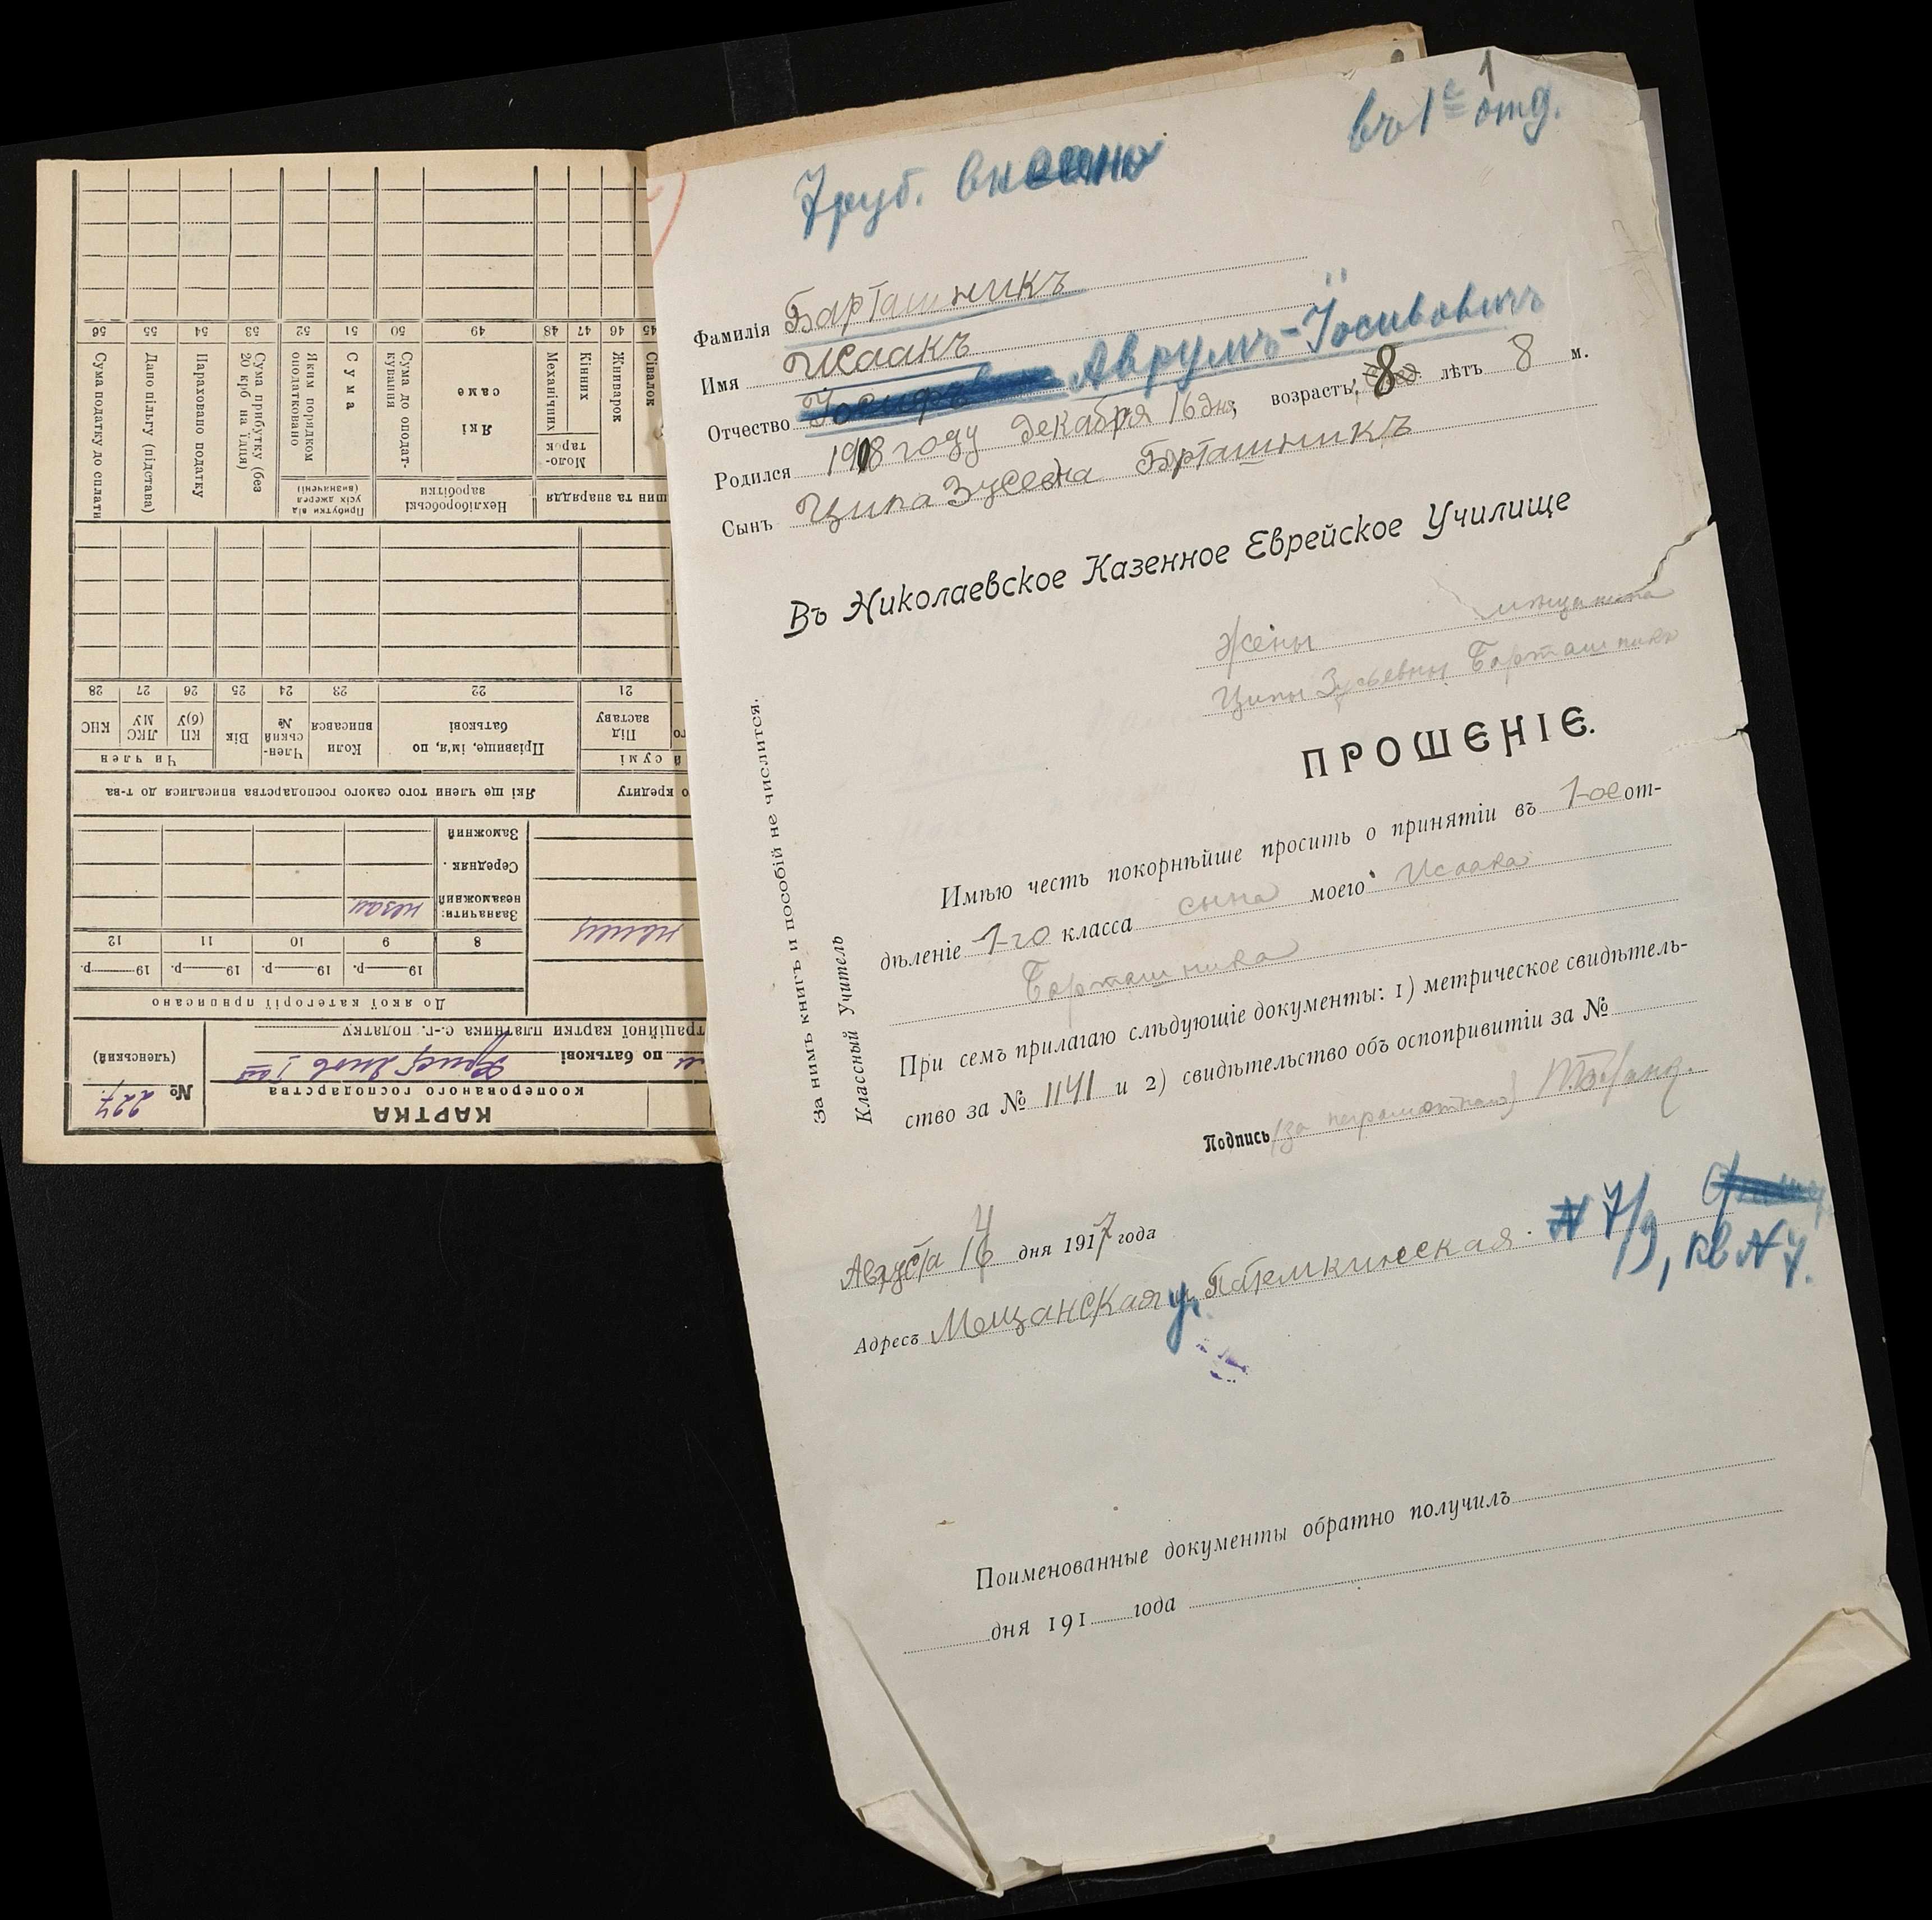 1
въ 1е отд.
7 руб. внесено
Фамилія Барташникъ
Имя Исаакъ
Отчество Аврумъ-Іосивовичъ
Родился 1908 году декабря 16 дня, возрастъ 8 лѣтъ 8 м.
Сынъ Ципа Зусевна Барташникъ
Въ Николаевское Казенное Еврейское Училище
Жены мѣщанина
Ципы Зусьевны Барташникъ
ПРОШЕНІЕ.
Имѣю честь покорнѣйше просить о принятіи въ 1-ое от-
дѣленіе 1-го класса сына моего Исаака
Барташника
При семъ прилагаю слѣдующіе документы: 1) метрическое свидѣтель-
ство за № 1141 и 2) свидѣтельство объ оспопривитіи за №
Подпись (за неграмотную)
Августа 16 дня 1917 года
Адресъ Мещанская уг. Патемкинская. № 7/9, кв № 7.
Поименованные документы обратно получилъ
дня 191 года
За нимъ книгъ и пособій не числится.
Классный Учитель
КАРТКА
кооперованого господарства
№ 227.
(членський)
по батькові
траційної картки платника с.-г. податку
До якої категорії приписано
19 р. 19 р. 19 р. 19 р.
8 9 10 11 12
Зазначити:
незаможний незам
Середняк
Заможний
о кредиту Які ще члени того самого господарства вписалися до т-ва
й сумі
Під заставу
Прізвище, ім'я, по батькові
Коли вписався
Член-ський №
Вік
Чи член
КП (б)У
ЛКСМУ
КНС
21 22 23 24 25 26 27 28
шин та знаряддя
Нехліборобські заробітки
Прибутки від усіх джерел (визначені)
Сівалок
Жниварок
Моло-тарок
Кінних
Механічних
Які саме
Сума до оподат-кування
Сума
Яким порядком оподатковано
Сума прибутку (без 20 крб на їдця)
Нараховано податку
Дано пільгу (підстава)
Сума податку до сплати
45 46 47 48 49 50 51 52 53 54 55 56